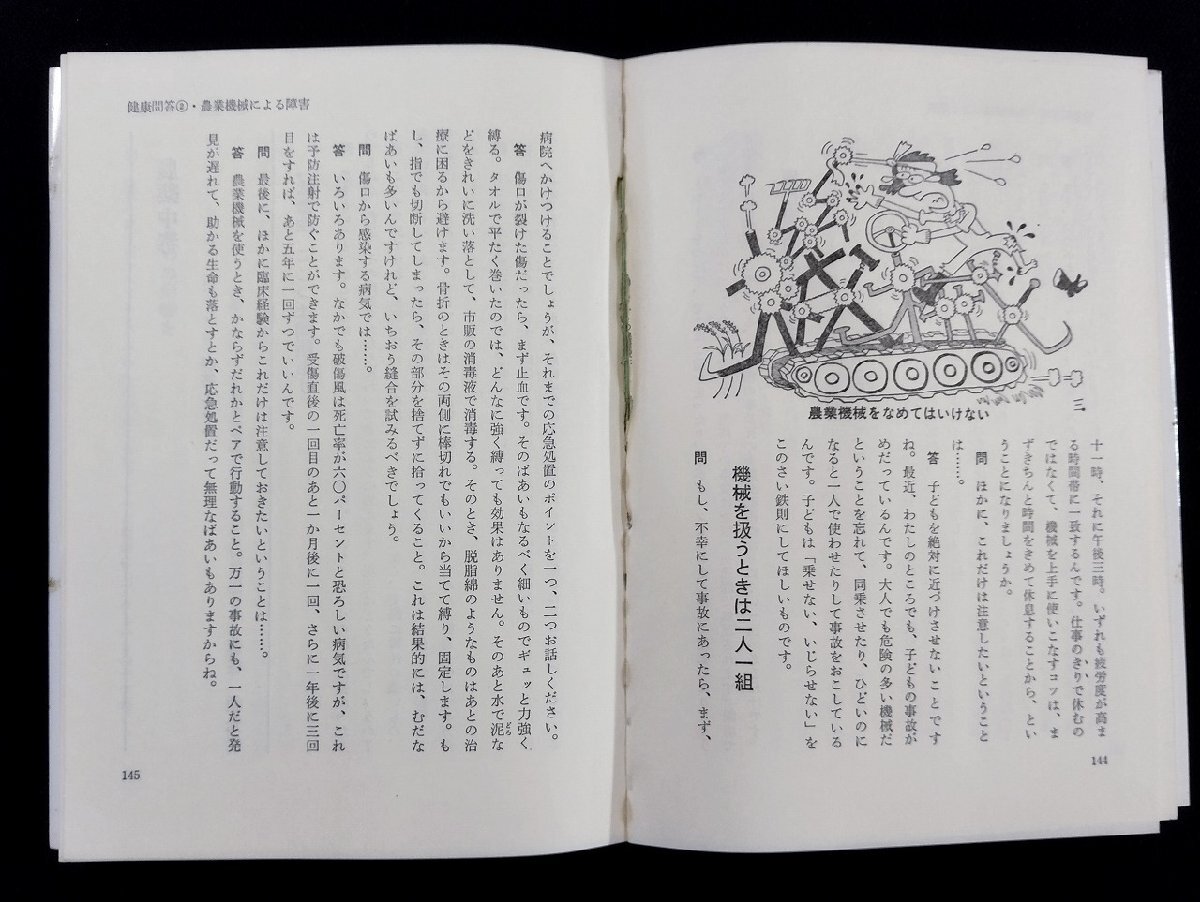 農業機械をなめてはいけない
十一時、それに午後三時。いずれも疲労度が高ま
る時間帯に一致するんです。仕事のきりで休むの
ではなくて、機械を上手に使いこなすコツは、ま
ずきちんと時間をきめて休息することから、とい
うことになりましょうか。
問 ほかに、これだけは注意したいということ
は……。
答 子どもを絶対に近づけさせないことです
ね。最近、わたしのところでも、子どもの事故が
めだっているんです。大人でも危険の多い機械だ
ということを忘れて、同乗させたり、ひどいのに
なると一人で使わせたりして事故をおこしている
んです。子どもは「乗せない、いじらせない」を
このさい鉄則にしてほしいものです。
機械を扱うときは二人一組
問 もし、不幸にして事故にあったら、まず、
144
健康問答②・農業機械による障害
病院へかけつけることでしょうが、それまでの応急処置のポイントを一つ、二つお話しください。
答 傷口が裂けた傷だったら、まず止血です。そのばあいもなるべく細いものでギュッと力強く
縛る。タオルで平たく巻いたのでは、どんなに強く縛っても効果はありません。そのあと水で泥な
どる
どをきれいに洗い落として、市販の消毒液で消毒する。そのとき、脱脂綿のようなものはあとの治
療に困るから避けます。骨折のときはその両側に棒切れでもいいから当てて縛り、固定します。も
し、指でも切断してしまったら、その部分を捨てずに拾ってくること。これは結果的には、むだな
ばあいも多いんですけれど、いちおう縫合を試みるべきでしょう。
問 傷口から感染する病気では……。
答 いろいろあります。なかでも破傷風は死亡率が六〇パーセントと恐ろしい病気ですが、これ
は予防注射で防ぐことができます。受傷直後の一回目のあと一か月後に一回、さらに一年後に三回
目をすれば、あと五年に一回ずつでいいんです。
問 最後に、ほかに臨床経験からこれだけは注意しておきたいということは……。
答 農業機械を使うとき、かならずだれかとペアで行動すること。万一の事故にも、一人だと発
見が遅れて、助かる生命も落とすとか、応急処置だって無理なばあいもありますからね。
145